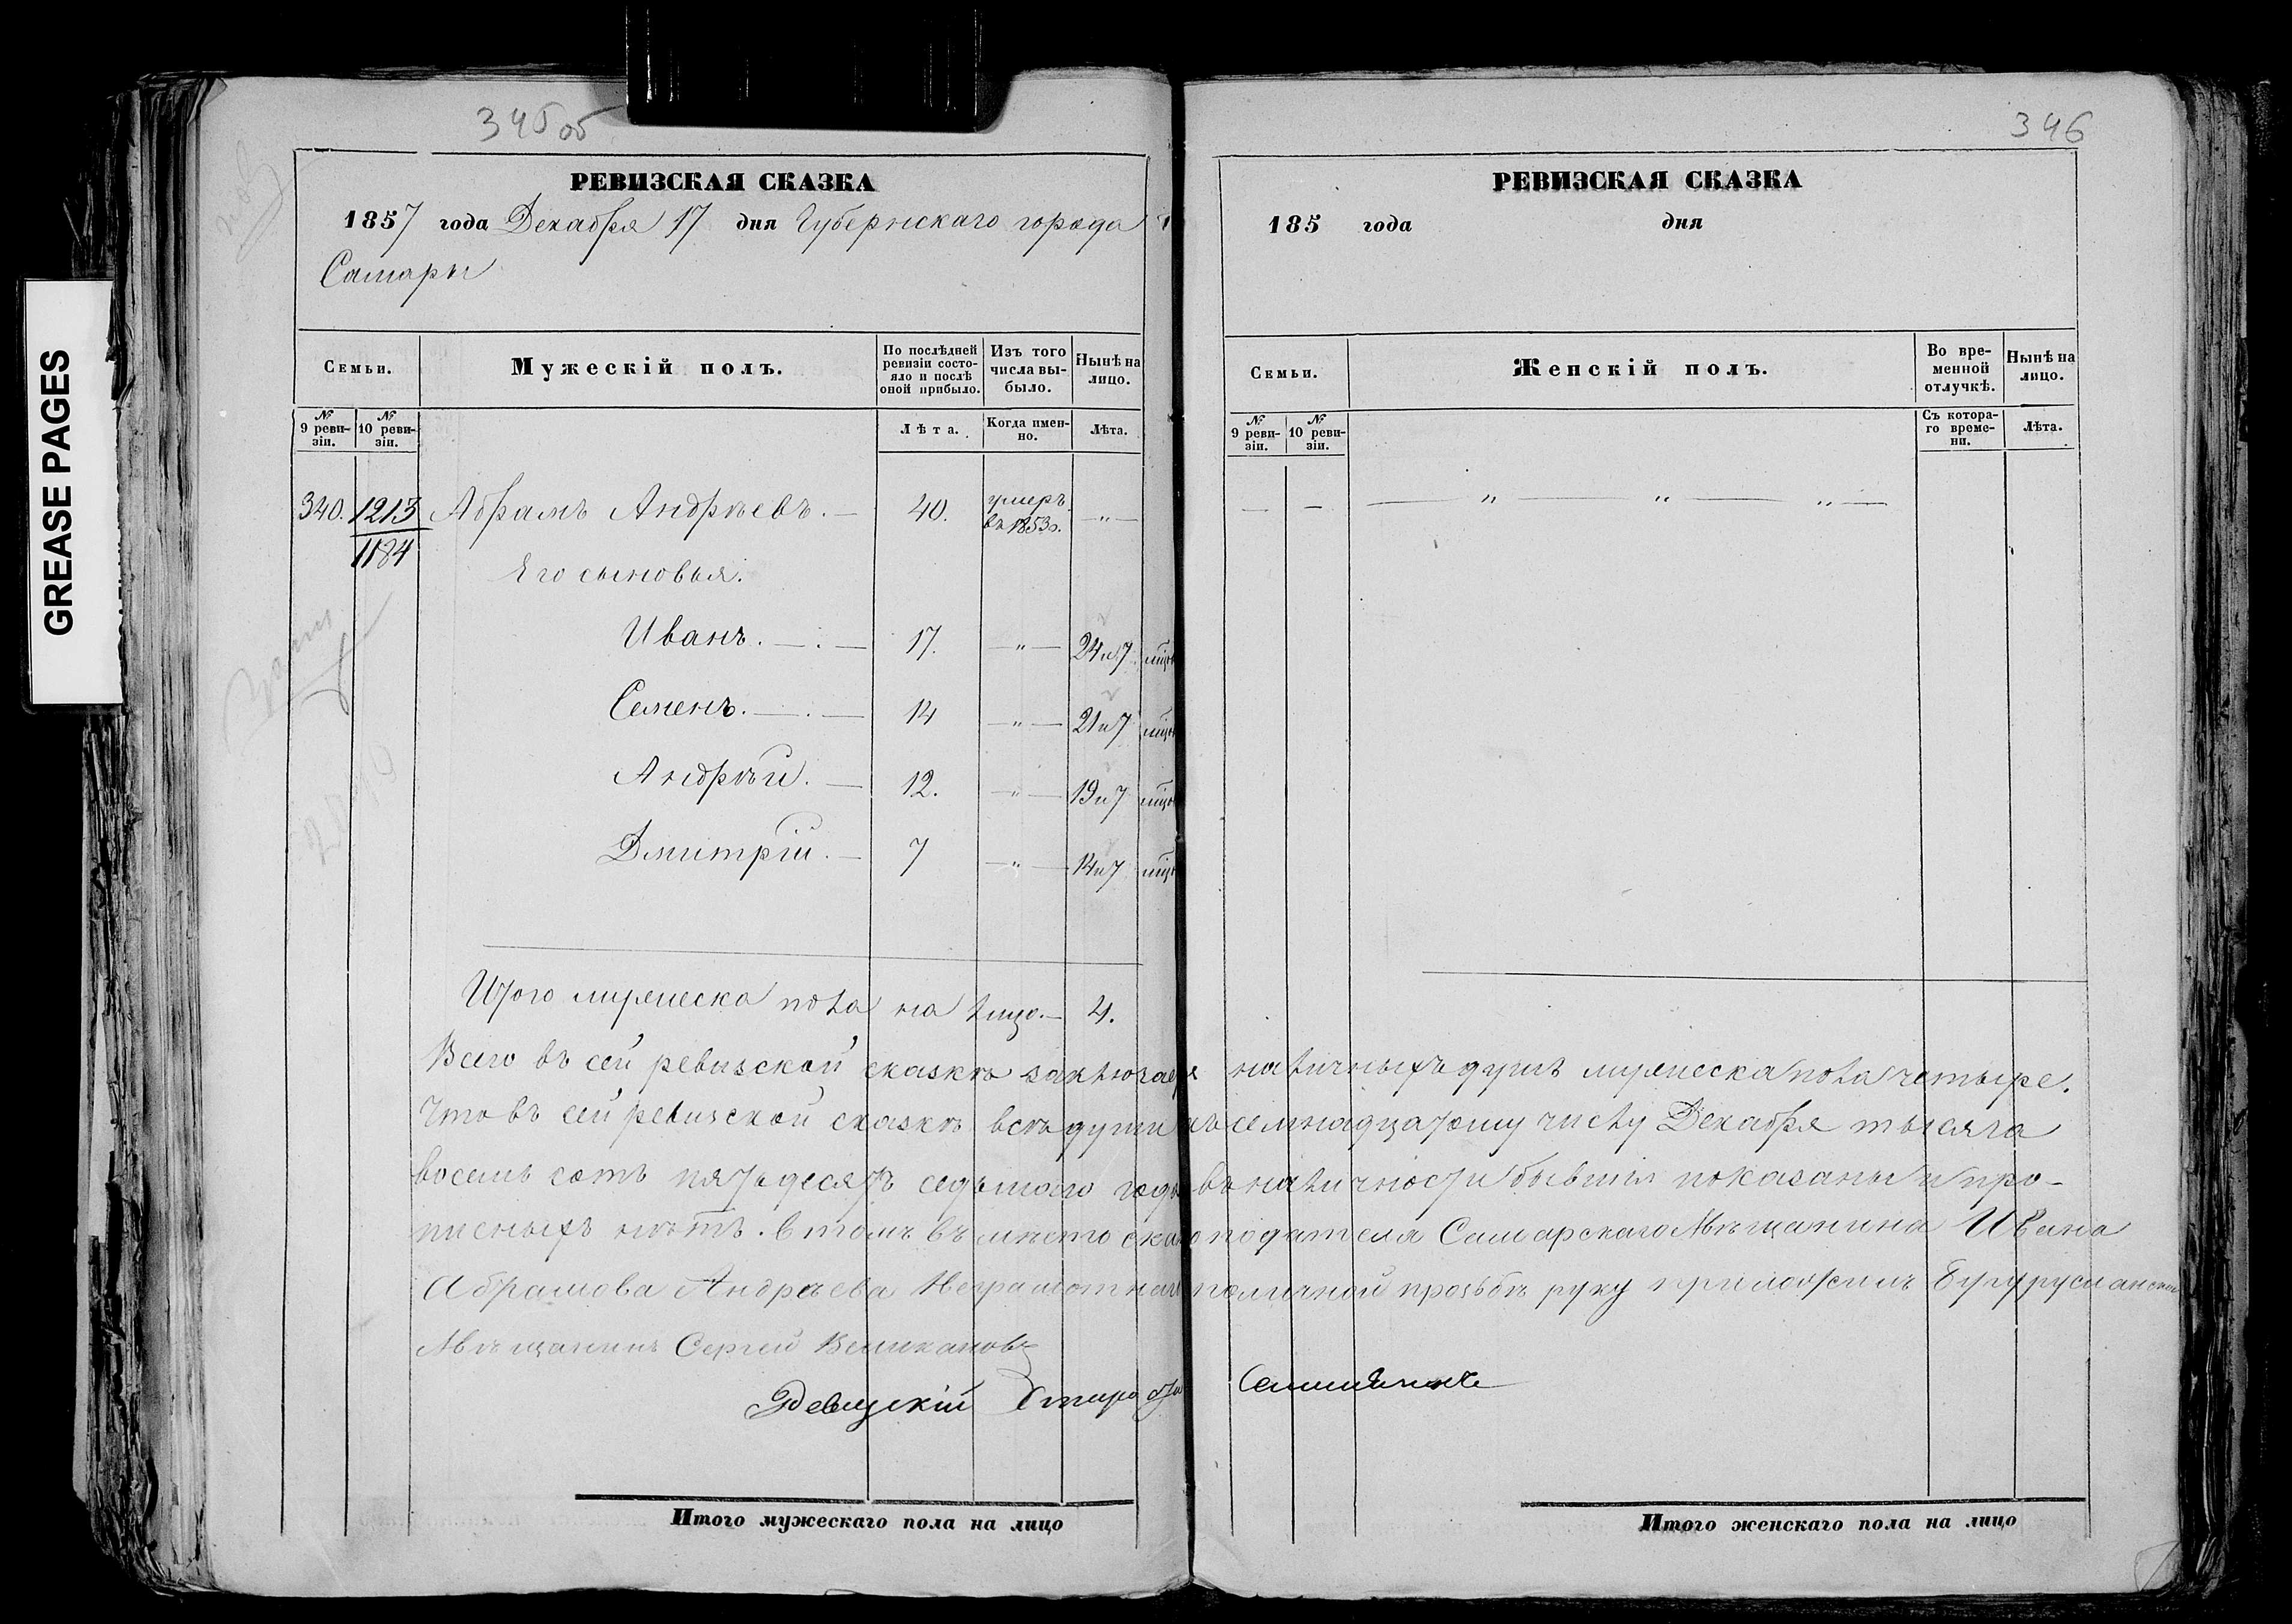 GREASE PAGES
345 об
РЕВИЗСКАЯ СКАЗКА
1857 года Декабря 17 дня Губернскаго города
Самары
Семьи.
Мужескій полъ.
По послѣдней ревизіи состояло и послѣ оной прибыло.
Изъ того числа выбыло.
Нынѣ на лицо.
№ 9 ревизіи.
№ 10 ревизіи.
Лѣта.
Когда именно.
Лѣта.
340. 1213 Абрамъ Андрѣевъ. — 40. умеръ въ 1853 г. — " —
1184
Его сыновья.
Иванъ. — . — 17. — " — 24 и 7 мѣся
Семенъ. — . — 14 — " — 21 и 7 мѣся
Андрѣй. — 12. — " — 19 и 7 мѣся
Дмитрій. — 7 — " — 14 и 7 мѣся
Итого мужеска пола на лицо. — 4.
Всего въ сей ревизской сказкѣ заключается наличныхъ душъ мужеска пола четыре.
Что въ сей ревизской сказкѣ всѣ души къ семнадцатому числу Декабря тысяча
восемь сотъ пятьдесятъ седьмаго года въ наличности бывшія показаны и про-
писныхъ нѣтъ. в томъ въ мѣсто сказкоподателя Самарскаго Мѣщанина Ивана
Абрамова Андрѣева Неграмотнаго по личной прозьбѣ руку приложилъ Бугурусланскій
Мѣщанинъ Сергей Великановъ
Итого мужескаго пола на лицо
346
РЕВИЗСКАЯ СКАЗКА
185 года дня
Семьи.
Женскій полъ.
Во временной отлучкѣ.
Нынѣ на лицо.
№ 9 ревизіи.
№ 10 ревизіи.
Съ котораго времени.
Лѣта.
— — — " — " — " —
Итого женскаго пола на лицо